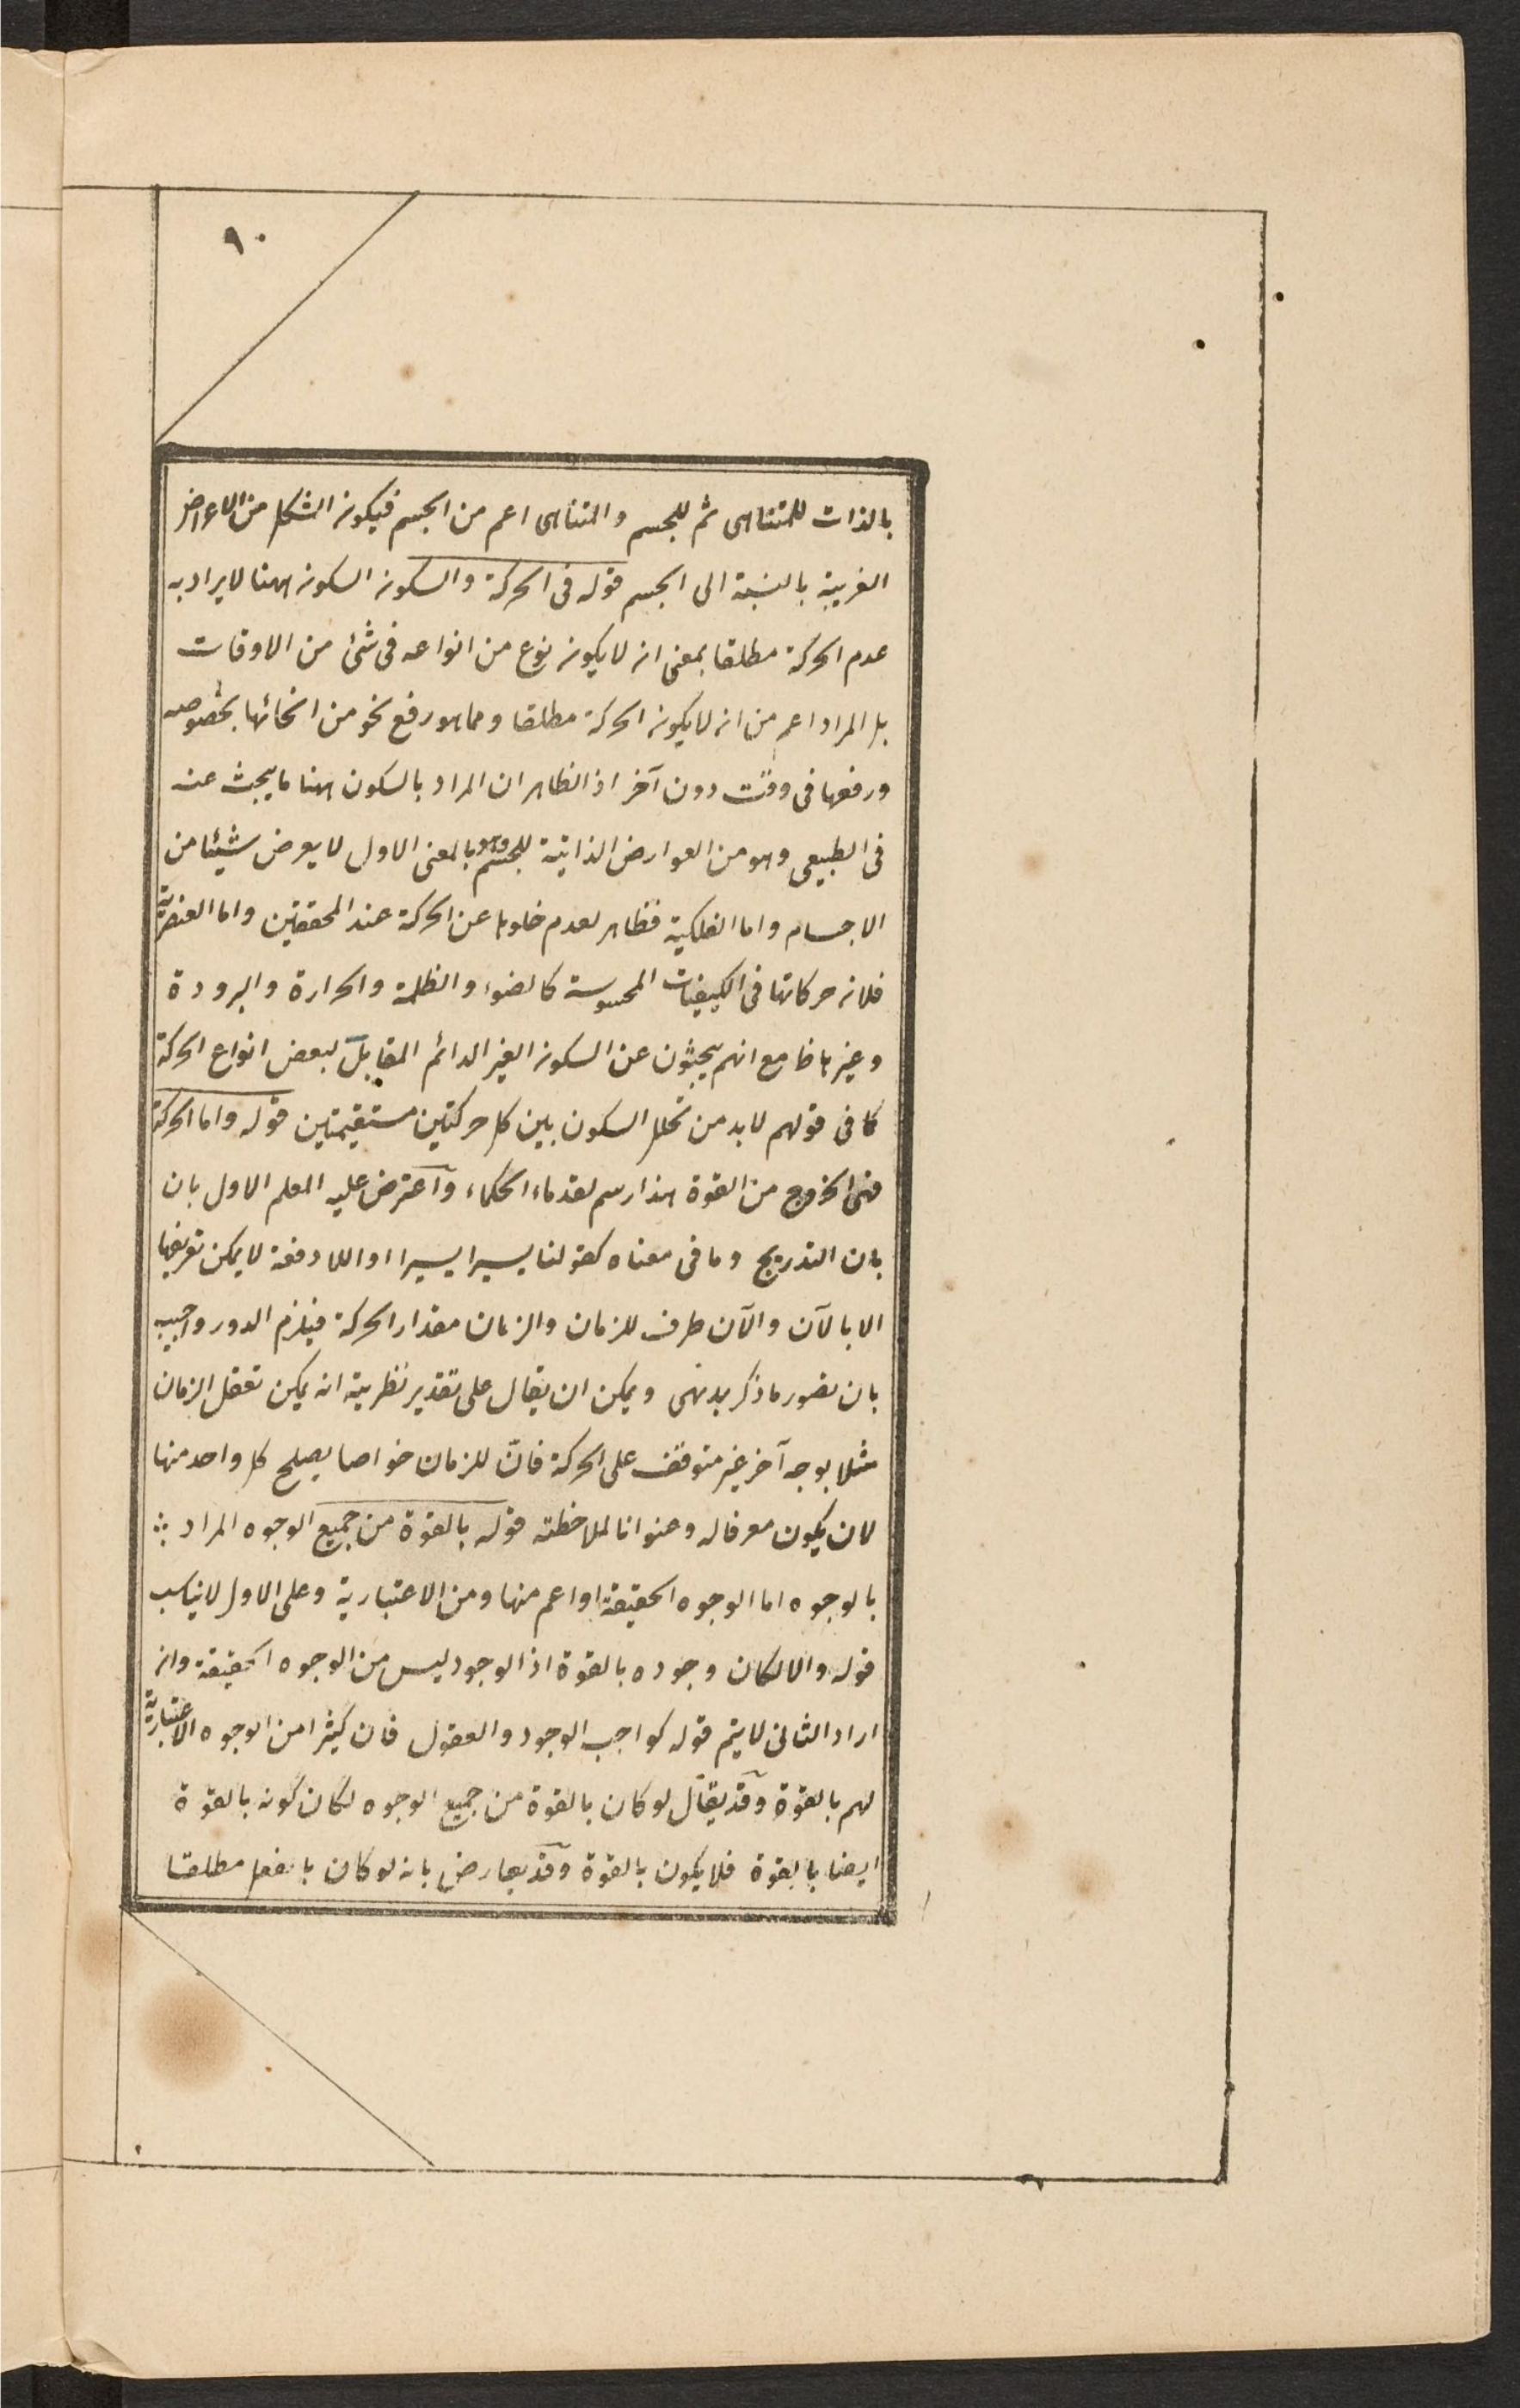 ٩٠
بالذات للمتناهى ثم للجسم والمتناهى اعم من الجسم فيكون الشكل من الاعراض
الغريبة بالنسبة الى الجسم قوله فى الحركة والسكون السكون ههنا لا يراد به
عدم الحركة مطلقا بمعنى انه لا يكون نوع من انواعه فى شئ من الاوقات
بل المراد اعم من ان لا يكون الحركة مطلقا ومما هو رفع نحو من انحائها بخصوصه
ورفعها فى وقت دون آخر اذ الظاهر ان المراد بالسكون ههنا ما يبحث عنه
فى الطبيعى وهو من العوارض الذاتية للجسم وهو بالمعنى الاول لا يعرض شيئا من
الاجسام واما الفلكية فظاهر لعدم خلوها عن الحركة عند المحققين واما العنصرية
فلانه حركاتها فى الكيفيات المحسوسة كالضوء والظلمة والحرارة والبرودة
وغيرها مع انهم يبحثون عن السكون الغير الدائم المقابل لبعض انواع الحركة
كما فى قولهم لابد من تخلل السكون بين كل حركتين مستقيمتين قوله واما الحركة
فهى الخروج من القوة هذا رسم لقدماء الحكماء واعترض عليه المعلم الاول بان
بان التدريج وما فى معناه كقولنا يسيرا يسيرا او اللا دفعة لا يمكن تعريفها
الا بالآن والآن طرف للزمان والزمان مقدار الحركة فيلزم الدور واجيب
بان تصور ما ذكر بديهى ويمكن ان يقال على تقدير نظرية انه يمكن تعقل الزمان
مثلا بوجه آخر غير متوقف على الحركة فان للزمان خواصا يصلح كل واحد منها
لان يكون معرفا له وعنوانا لملاحظته قوله بالقوة من جميع الوجوه المراد
بالوجوه اما الوجوه الحقيقة او اعم منها ومن الاعتبارية وعلى الاول لا يناسب
قوله والا لكان وجوده بالقوة اذ الوجود ليس من الوجوه الحقيقة وان
اراد الثانى لا يتم قوله كواجب الوجود والعقول فان كثيرا من الوجوه الاعتبارية
لهم بالقوة وقد يقال لو كان بالقوة من جميع الوجوه لكان كونه بالقوة
ايضا بالقوة فلا يكون بالقوة وقد يعارض بانه لو كان بالفعل مطلقا